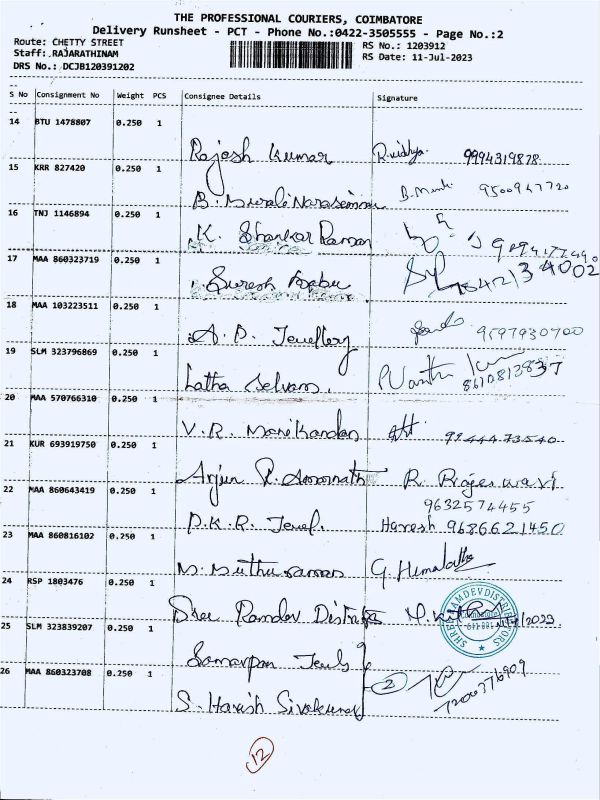 THE PROFESSIONAL COURIERS, COIMBATORE
Delivery Runsheet - PCT - Phone No.:0422-3505555 - Page No.:2
Route: CHETTY STREET
Staff: RAJARATHINAM
DRS No.: DCJB120391202
RS No.: 1203912
RS Date: 11-Jul-2023
S No Consignment No Weight PCS Consignee Details Signature
14 BTU 1478807 0.250 1
Rajesh Kumar R.vidhya. 9994319878
15 KRR 827420 0.250 1
B. Murali Narasimman 9500947720
16 TNJ 1146894 0.250 1
K. Shankar Raman
17 MAA 860323719 0.250 1
Suresh Babu
18 MAA 103223511 0.250 1
A. D. Jewellery 9597930700
19 SLM 323796869 0.250 1
Latha Selvam.
20 MAA 570766310 0.250 1
V. R. Manikandan
21 KUR 693919750 0.250 1
Arjun R. Amarnath R. Rajeswari
22 MAA 860643419 0.250 1
9632574455
D. K. R. Jewel. Haresh 9686621450
23 MAA 860816102 0.250 1
M. Muthuraman G. Hemalatha
24 RSP 1803476 0.250 1
Sree Ramdev Distri
25 SLM 323839207 0.250 1
Samarpan Jewls
26 MAA 860323708 0.250 1
2 7200376909
S. Harish Sivakumar
12